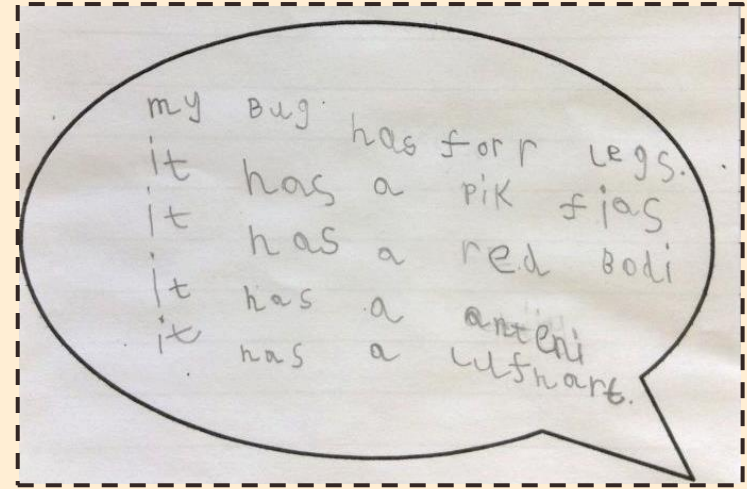 my Bug has forr legs.
it has a pik fjas
it has a red Bodi
it has a anteni
it has a lufhart.